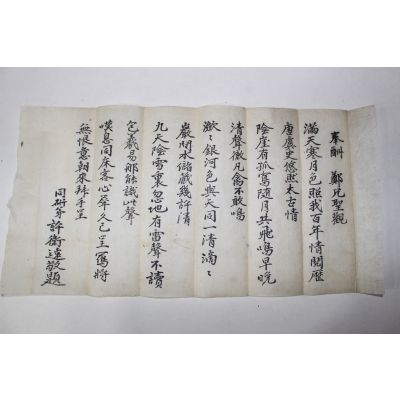 奉酬 鄭兄聖觀
滿天寒月色照我百年情閱歷
唐虞史悠然太古情
陰崖有孤鶱隨月共飛鳴早晩
清聲徹凡禽不敢鳴
濊々銀河色與天同一清滴々
巖間水儲歲幾許清
九天陰雪裏忽地有雷聲不讀
包羲易那能識此聲
嘆息同床客心犀久已呈寫將
無恨意朝來拜手呈
同硏弟 許衡達敬題